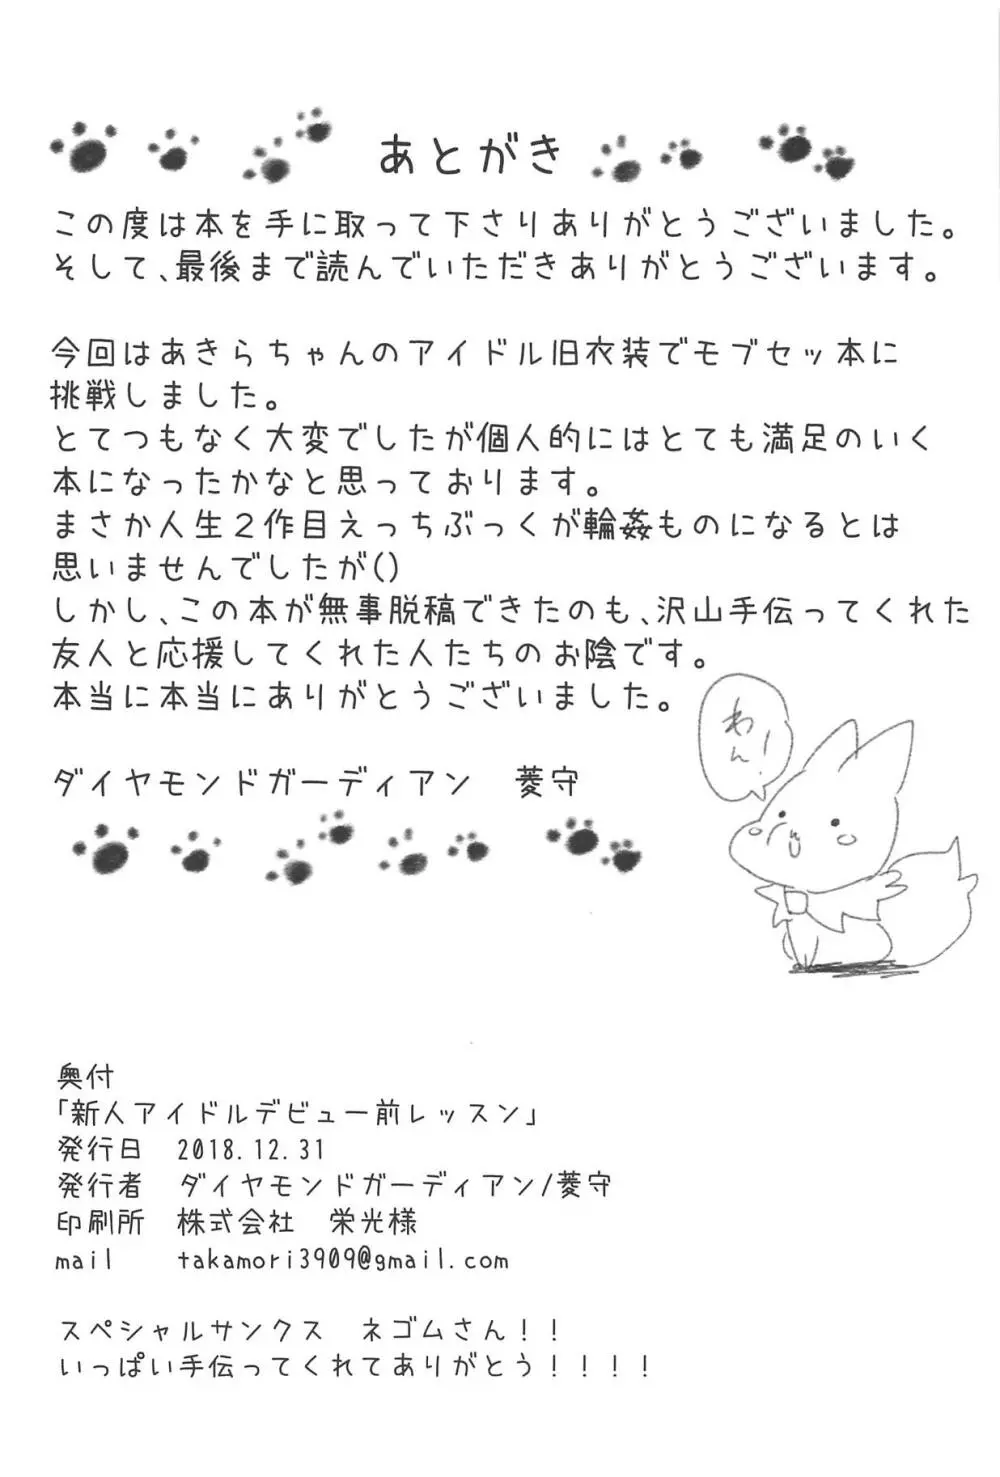 あとがき
この度は本を手に取って下さりありがとうございました。
そして、最後まで読んでいただきありがとうございます。
今回はあきらちゃんのアイドル旧衣装でモブセッ本に
挑戦しました。
とてつもなく大変でしたが個人的にはとても満足のいく
本になったかなと思っております。
まさか人生２作目えっちぶっくが輪姦ものになるとは
思いませんでしたが()
しかし、この本が無事脱稿できたのも、沢山手伝ってくれた
友人と応援してくれた人たちのお陰です。
本当に本当にありがとうございました。
わん！
ダイヤモンドガーディアン　菱守
奥付
「新人アイドルデビュー前レッスン」
発行日　2018.12.31
発行者　ダイヤモンドガーディアン/菱守
印刷所　株式会社　栄光様
mail　takamori3909@gmail.com
スペシャルサンクス　ネゴムさん！！
いっぱい手伝ってくれてありがとう！！！！